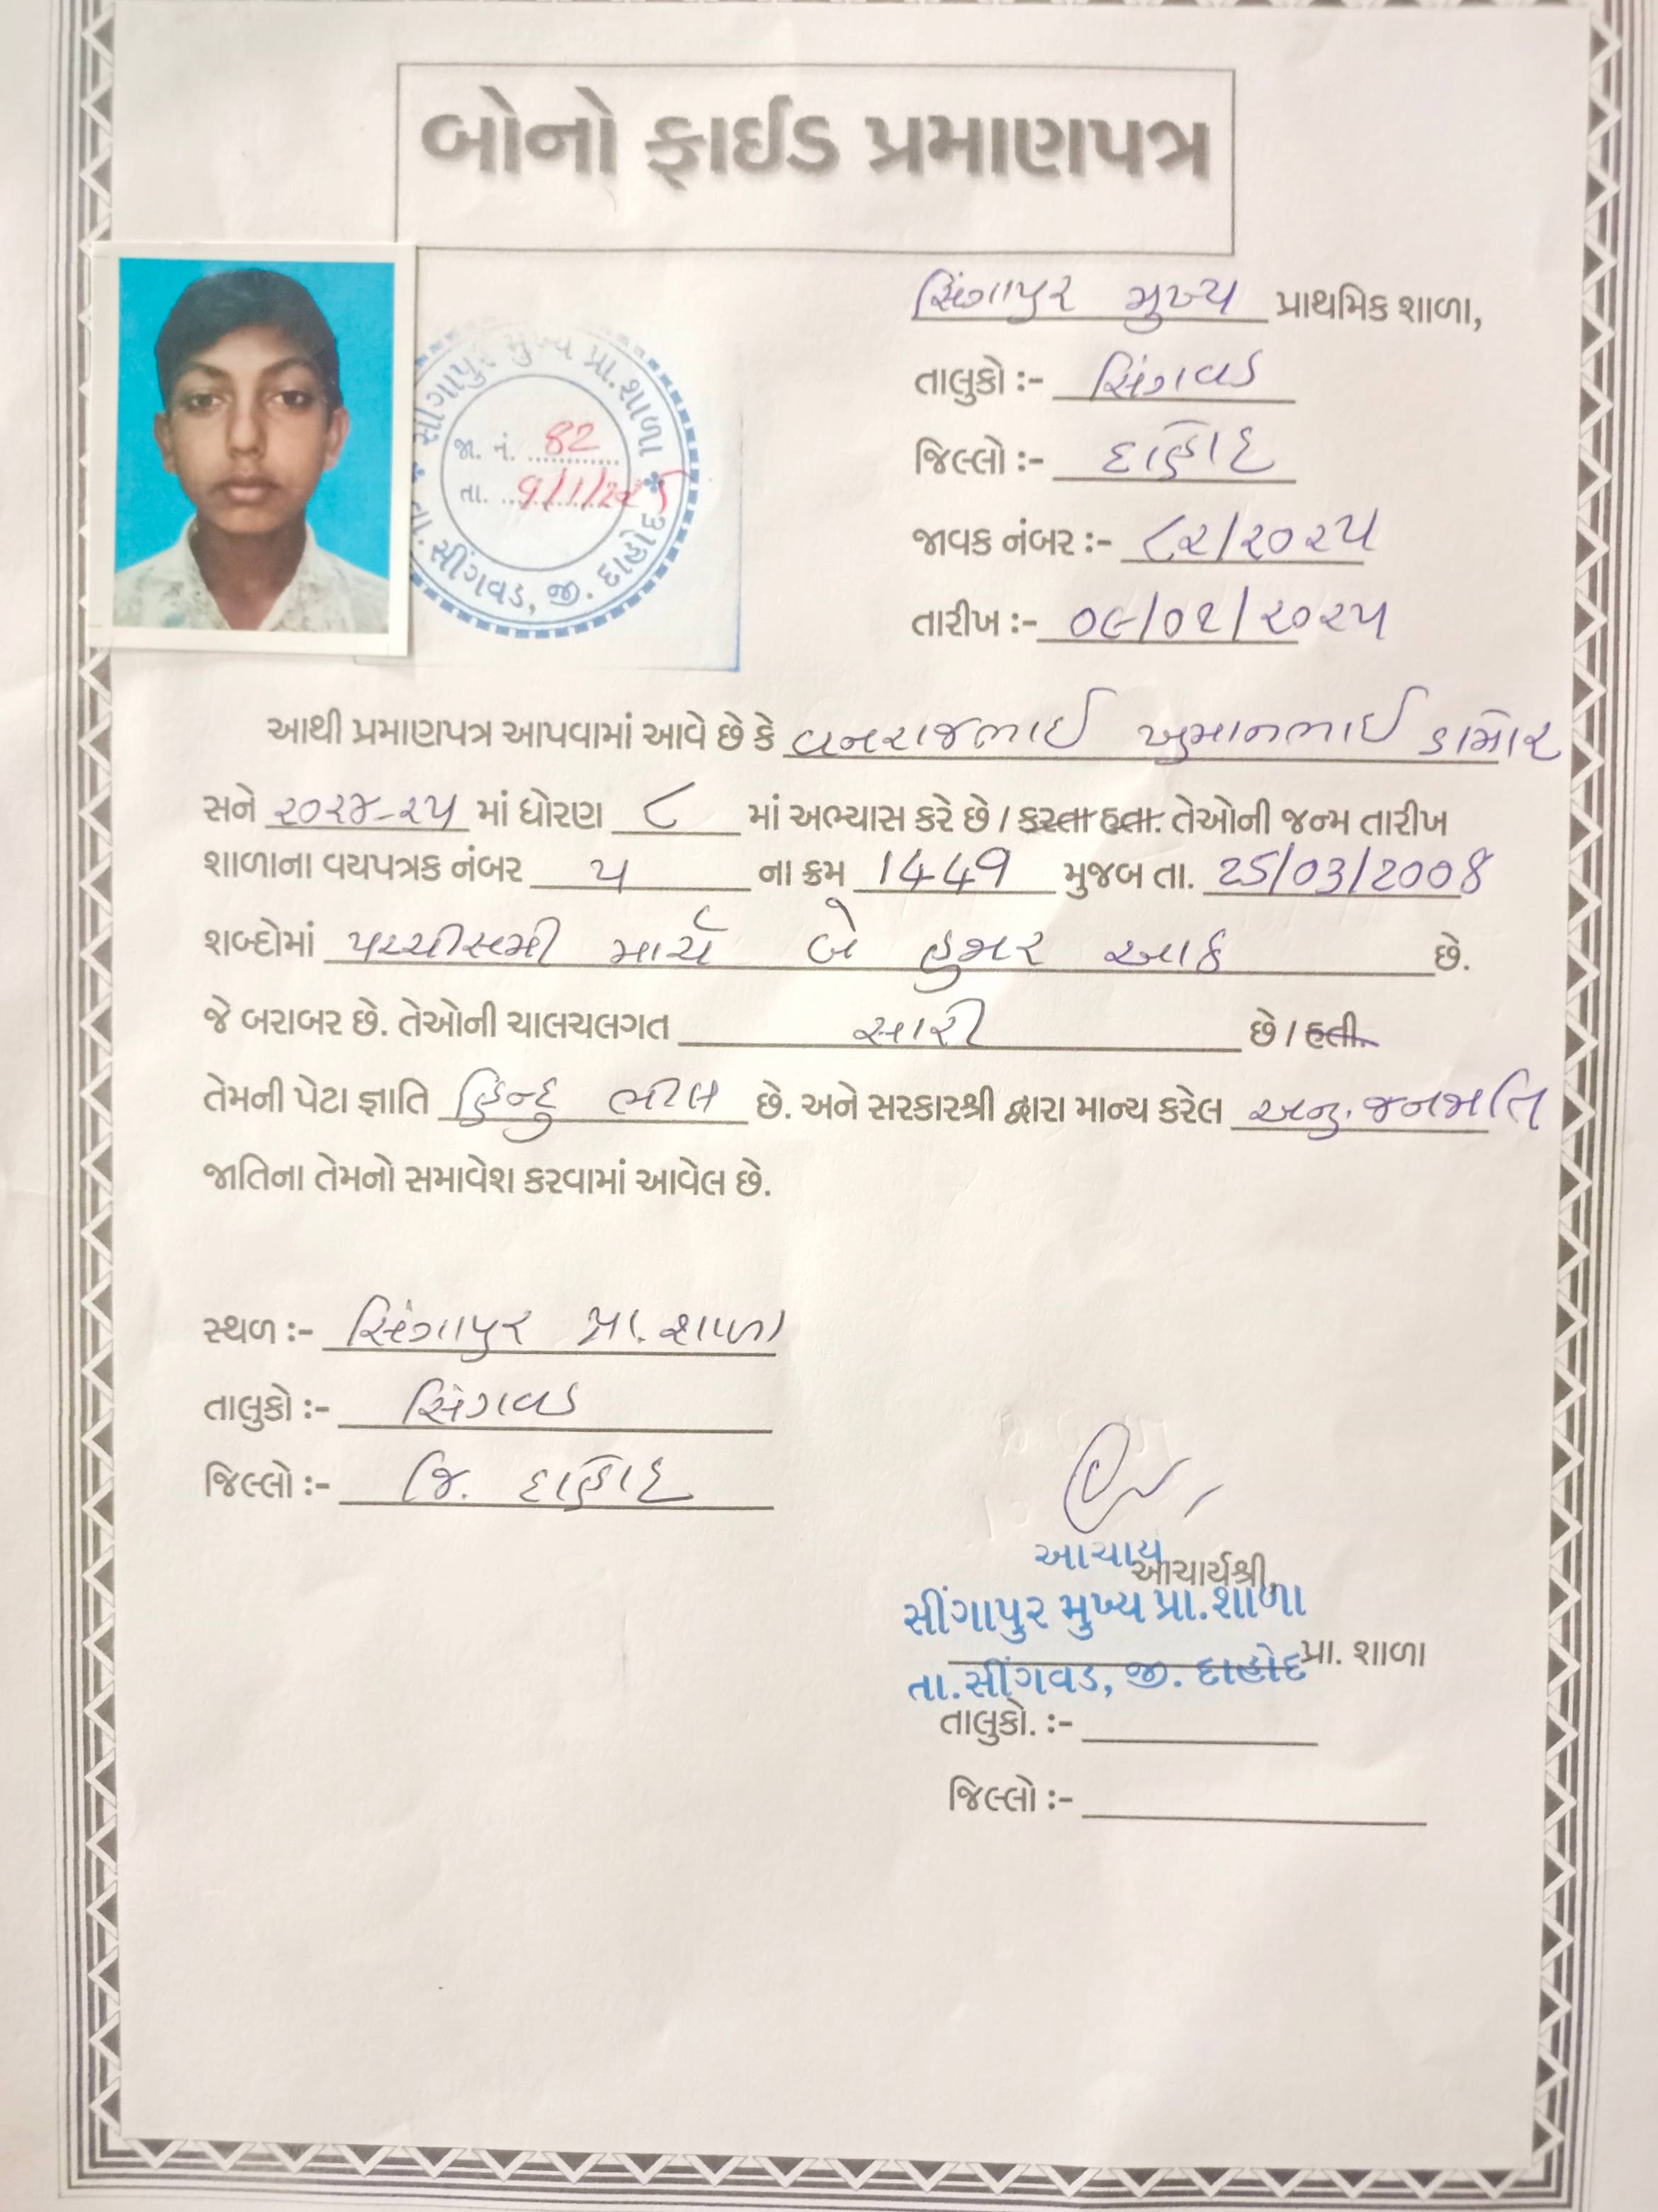 બોનો ફાઈડ પ્રમાણપત્ર
સિંગાપુર મુખ્ય પ્રાથમિક શાળા,
તાલુકો :- સિંગવડ
જિલ્લો :- દાહોદ
જાવક નંબર :- ૮૨/૨૦૨૫
તારીખ :- ૦૯/૦૧/૨૦૨૫
સીંગાપુર મુખ્ય પ્રા.શાળા
જા. નં. 82
તા. 9/1/2025
તા. સીંગવડ, જી. દાહોદ
આથી પ્રમાણપત્ર આપવામાં આવે છે કે વનરાજભાઈ ખુમાનભાઈ ડામોર
સને ૨૦૨૪-૨૫ માં ધોરણ ૮ માં અભ્યાસ કરે છે / કરતા હતા. તેઓની જન્મ તારીખ
શાળાના વયપત્રક નંબર ૫ ના ક્રમ 1449 મુજબ તા. 25/03/2008
શબ્દોમાં પચ્ચીસમી માર્ચ બે હજાર આઠ છે.
જે બરાબર છે. તેઓની ચાલચલગત સારી છે / હતી.
તેમની પેટા જ્ઞાતિ હિન્દુ ભીલ છે. અને સરકારશ્રી દ્વારા માન્ય કરેલ અનુ. જનજાતિ
જાતિના તેમનો સમાવેશ કરવામાં આવેલ છે.
સ્થળ :- સિંગાપુર પ્રા. શાળા
તાલુકો :- સિંગવડ
જિલ્લો :- જિ. દાહોદ
આચાર્ય
આચાર્યશ્રી,
સીંગાપુર મુખ્ય પ્રા.શાળા
પ્રા. શાળા
તા.સીંગવડ, જી. દાહોદ
તાલુકો. :-
જિલ્લો :-